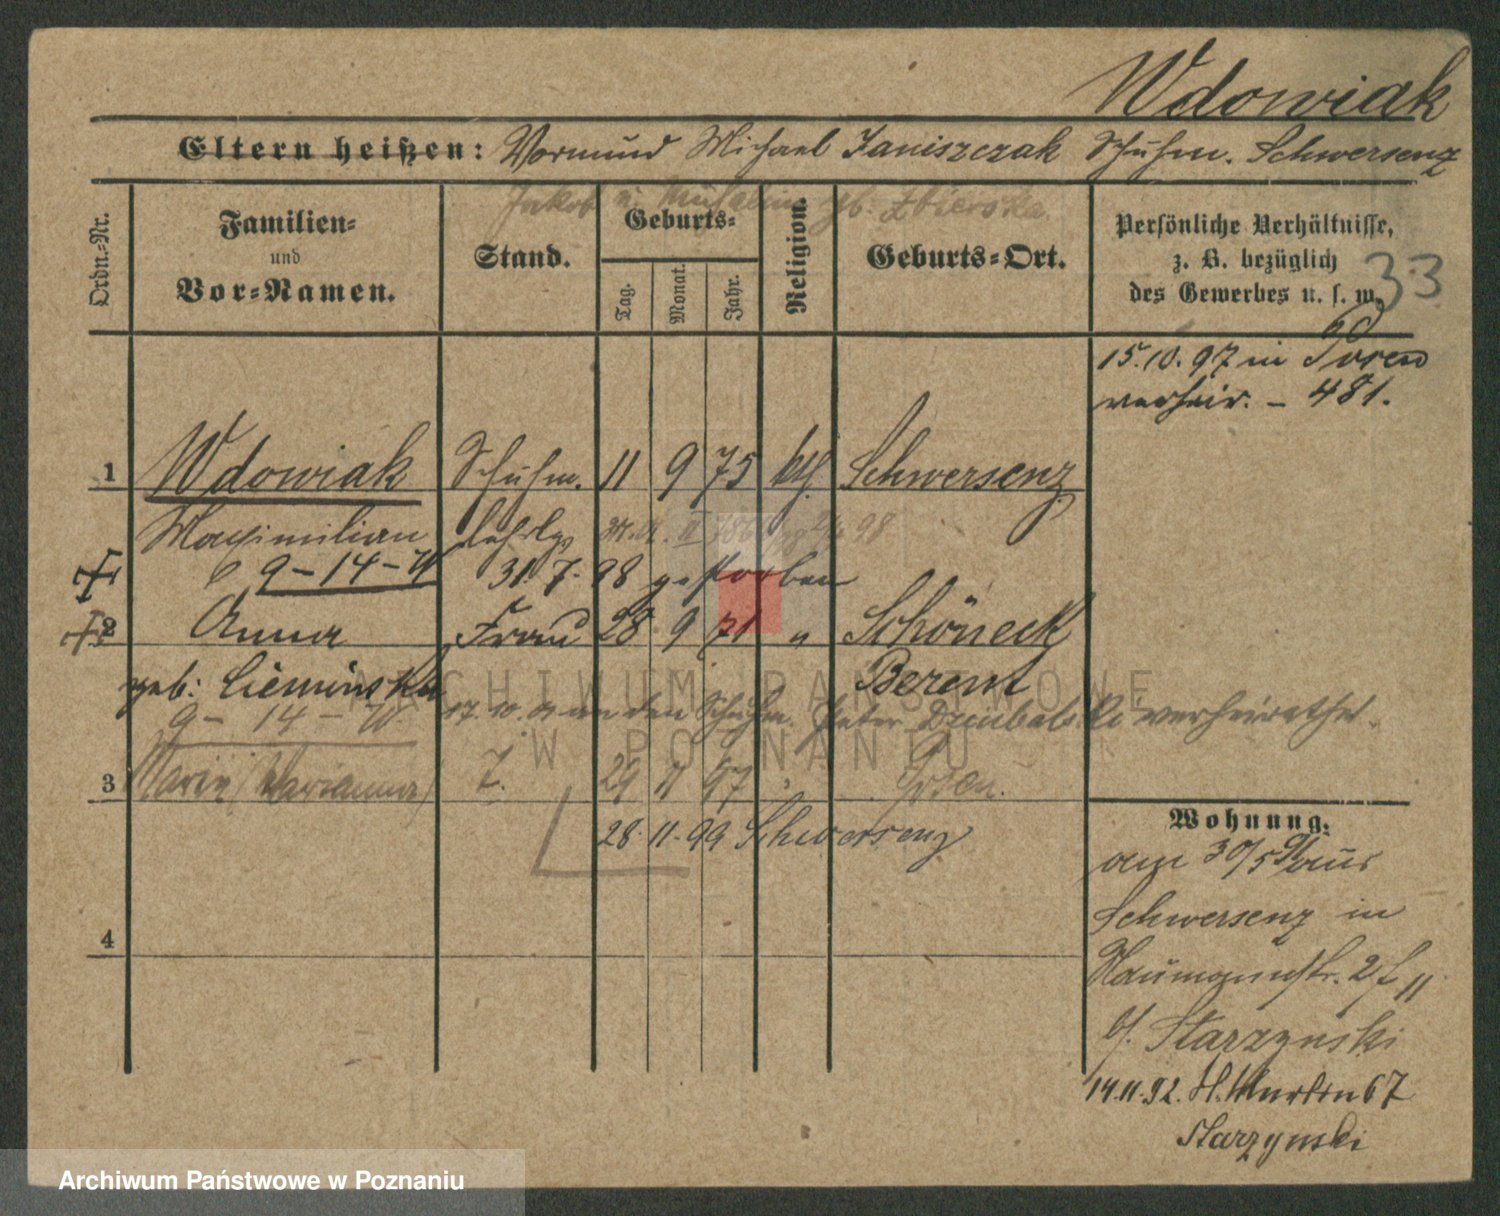 Wdowiak
Eltern heißen: Vormund Michael Janiszczak Schuhm. Schwersenz
Jakob u. geb. Zbierska
Ordn.-Nr.
Familien-
und
Vor-Namen.
Stand.
Geburts-
Tag.
Monat.
Jahr.
Religion.
Geburts-Ort.
Persönliche Verhältnisse,
z. B. bezüglich
des Gewerbes u. s. w.
33
15.10.97 in Posen
verheir. – 481.
1 Wdowiak Schuhm. 11 9 75 kth. Schwersenz
Maximilian Lehrlg. 98
9 – 14 – W 31. 7. 98 gestorben
2 Anna Frau 28 9 71 " Schöneck
geb: Ciéminska Berent
9 – 14 – W 17. 10. an den Schuhm. Peter verheirathet.
3 Marie (Marianna) T. 29 11 97 " Posen.
28. 11. 99 Schwersenz
4
Wohnung.
am 30/5 91 aus
Schwersenz in
Naumannstr. 2
b/. Starzynski
14.11.92. St. Martin 67
Starzynski
ARCHIWUM PAŃSTWOWE
W POZNANIU
Archiwum Państwowe w Poznaniu